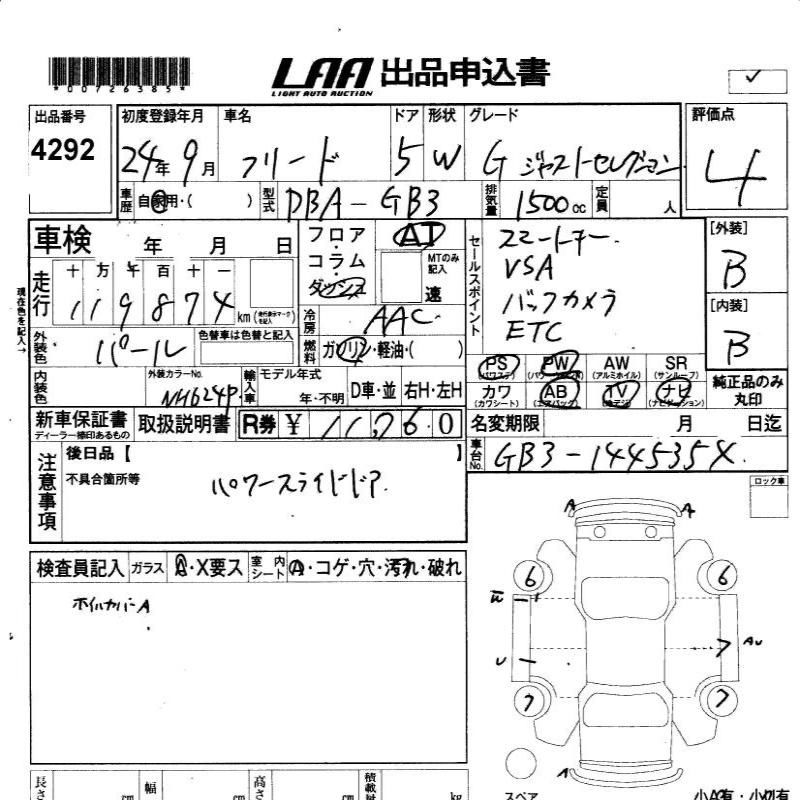 LAA 出品申込書
LIGHT AUTO AUCTION
*00726385*
出品番号 初度登録年月 車名 ドア 形状 グレード 評価点
4292 24年 9月 フリード 5 W G ジャストセレクション 4
車歴 自家用・( ) 型式 DBA-GB3 排気量 1500cc 定員 人
車検 年 月 日 フロア AT セールスポイント スマートキー. [外装]
コラム MTのみ記入 VSA B
走行 十 万 千 百 十 一 ダッシュ 速 バックカメラ
現在色を記入→ 119874 km (走行表示マークを記入) 冷房 AAC ETC [内装]
外装色 パール 色替車は色替と記入 燃料 ガソリン・軽油・( ) B
PS PW AW SR
(パワステ) (パワーウインドウ) (アルミホイル) (サンルーフ)
内装色 外装カラーNo. NH624P 輸入車 モデル年式 年・不明 D車・並 右H・左H カワ AB TV ナビ 純正品のみ丸印
(カワシート) (エアバッグ) (地デジ) (ナビゲーション)
新車保証書 取扱説明書 R券 ¥ 11,760 名変期限 月 日迄
ディーラー捺印あるもの
注意事項 後日品【 】 車台No. GB3-1445354.
不具合箇所等 パワースライドドア. ロック車
検査員記入 ガラス A・X要ス 室内シート A・コゲ・穴・汚れ・破れ
ホイルカバーA
A A
6 6
U 7 AU
7 7
A
スペア 小A有・小凹有
長さ cm 幅 cm 高さ cm 積載量 kg